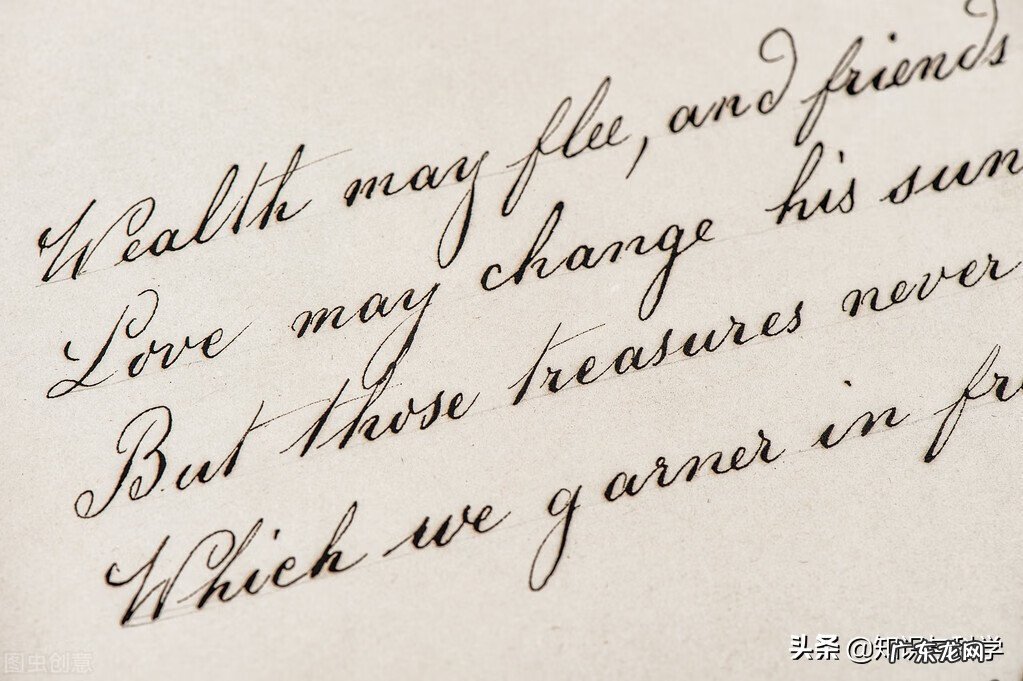 Wealth may flee, and friends
Love may change his sun
But those treasures never
Which we garner in fr
头条 @
广东龙网
图虫创意